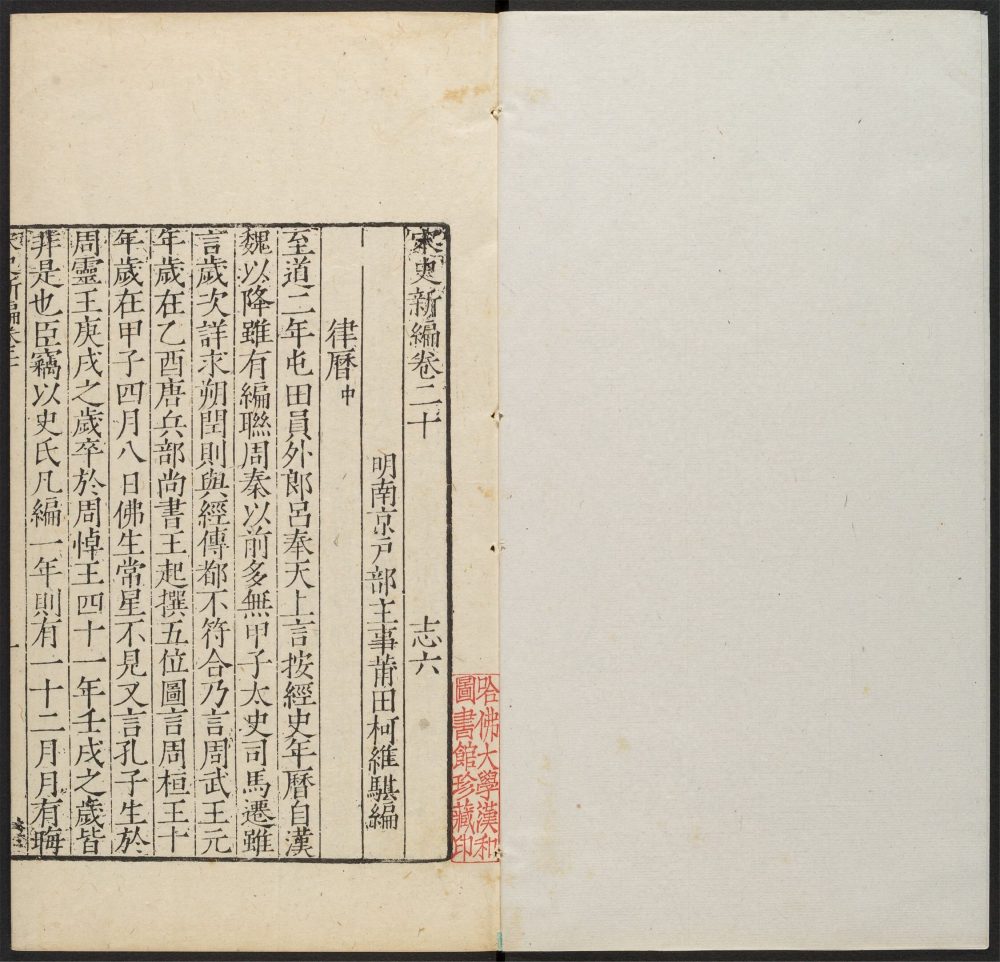 宋史新編卷二十 志六
明南京戸部主事莆田柯維騏編
律曆中
至道二年屯田員外郎呂奉天上言按經史年曆自漢
魏以降雖有編聯周秦以前多無甲子太史司馬遷雖
言歲次詳求朔閏則與經傳都不符合乃言周武王元
年歲在乙酉唐兵部尚書王起撰五位圖言周桓王十
年歲在甲子四月八日佛生常星不見又言孔子生於
周靈王庚戌之歲卒於周悼王四十一年壬戌之歲皆
非是也臣竊以史氏凡編一年則有一十二月月有晦
哈佛大學漢和
圖書館珍藏印